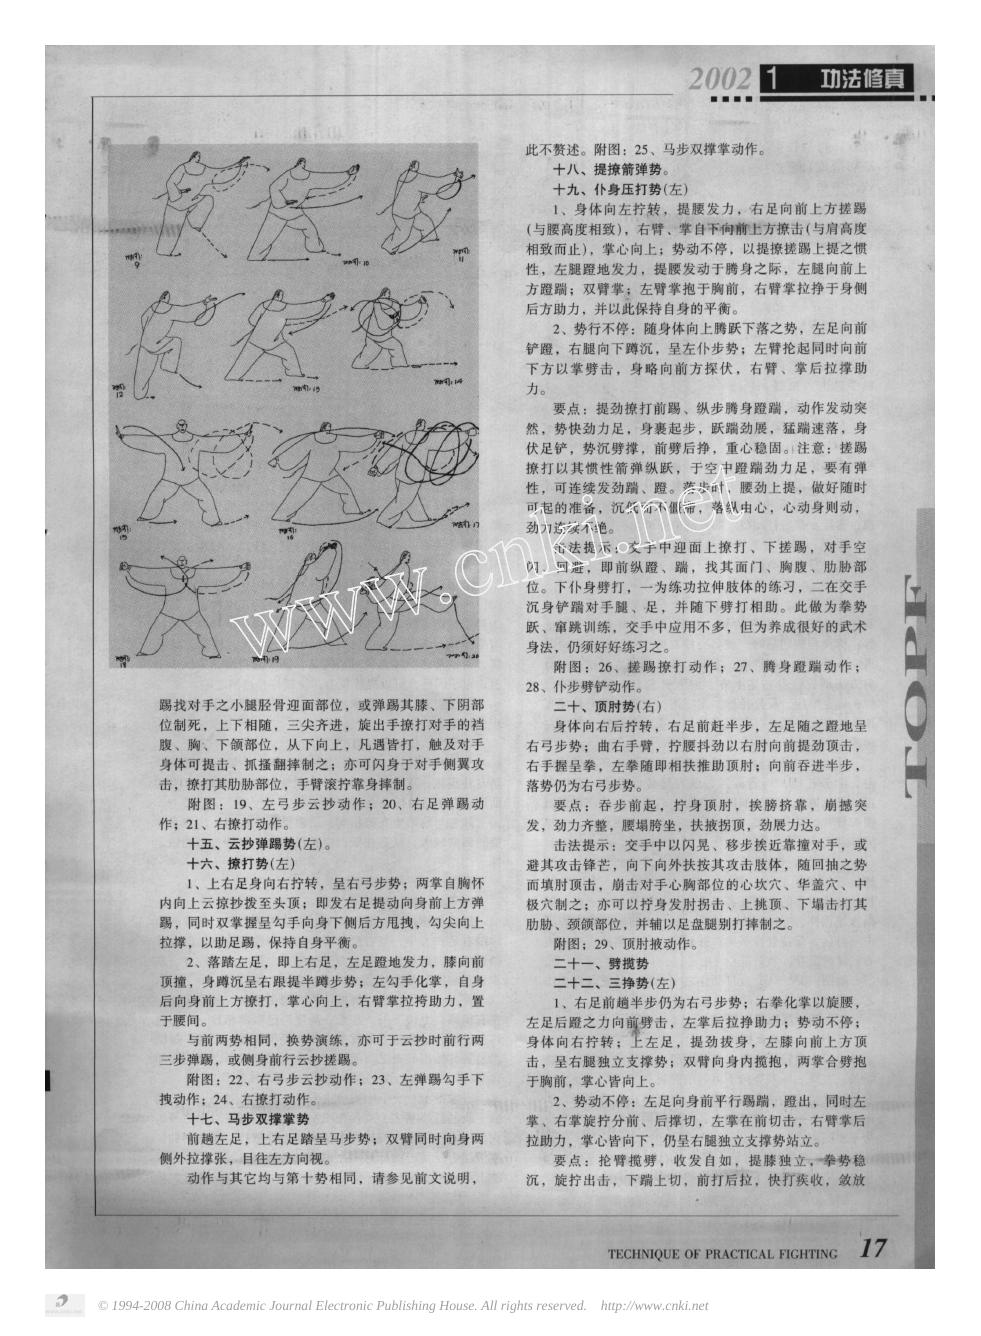 2002 1 功法修真
附图:
9
附图: 10
附图:
11
附图:
12
附图: 13
附图: 14
附图:
15
附图:
16
附图: 17
附图:
18
附图: 19
附图: 20
踢找对手之小腿胫骨迎面部位，或弹踢其膝、下阴部
位制死，上下相随，三尖齐进，旋出手撩打对手的裆
腹、胸、下颌部位，从下向上，凡遇皆打，触及对手
身体可提击、抓搔翻摔制之；亦可闪身于对手侧翼攻
击，撩打其肋胁部位，手臂滚拧靠身摔制。
附图：19、左弓步云抄动作；20、右足弹踢动
作；21、右撩打动作。
十五、云抄弹踢势(左)。
十六、撩打势(左)
1、上右足身向右拧转，呈右弓步势；两掌自胸怀
内向上云掠抄拨至头顶；即发右足提动向身前上方弹
踢，同时双掌握呈勾手向身下侧后方甩拽，勾尖向上
拉撑，以助足踢，保持自身平衡。
2、落踏左足，即上右足，左足蹬地发力，膝向前
顶撞，身蹲沉呈右跟提半蹲步势；左勾手化掌，自身
后向身前上方撩打，掌心向上，右臂掌拉挎助力，置
于腰间。
与前两势相同，换势演练，亦可于云抄时前行两
三步弹踢，或侧身前行云抄搓踢。
附图：22、右弓步云抄动作；23、左弹踢勾手下
拽动作；24、右撩打动作。
十七、马步双撑掌势
前趟左足，上右足踏呈马步势；双臂同时向身两
侧外拉撑张，目往左方向视。
动作与其它均与第十势相同，请参见前文说明，
此不赘述。附图：25、马步双撑掌动作。
十八、提撩箭弹势。
十九、仆身压打势(左)
1、身体向左拧转，提腰发力，右足向前上方搓踢
(与腰高度相致)，右臂、掌自下向前上方撩击(与肩高度
相致而止)，掌心向上；势动不停，以提撩搓踢上提之惯
性，左腿蹬地发力，提腰发动于腾身之际，左腿向前上
方蹬踹；双臂掌；左臂掌抱于胸前，右臂掌拉挣于身侧
后方助力，并以此保持自身的平衡。
2、势行不停：随身体向上腾跃下落之势，左足向前
铲蹬，右腿向下蹲沉，呈左仆步势；左臂抡起同时向前
下方以掌劈击，身略向前方探伏，右臂、掌后拉撑助
力。
要点：提劲撩打前踢、纵步腾身蹬踹，动作发动突
然，势快劲力足，身裹起步，跃踹劲展，猛踹速落，身
伏足铲，势沉劈撑，前劈后挣，重心稳固。注意：搓踢
撩打以其惯性箭弹纵跃，于空中蹬踹劲力足，要有弹
性，可连续发劲踹、蹬。落步时，腰劲上提，做好随时
可起的准备，沉俯而不僵滞，落纵由心，心动身则动，
劲力连续不绝。
击法提示：交手中迎面上撩打、下搓踢，对手空
闪、回避，即前纵蹬、踹，找其面门、胸腹、肋胁部
位。下仆身劈打，一为练功拉伸肢体的练习，二在交手
沉身铲踹对手腿、足，并随下劈打相助。此做为拳势
跃、窜跳训练，交手中应用不多，但为养成很好的武术
身法，仍须好好练习之。
附图：26、搓踢撩打动作；27、腾身蹬踹动作；
28、仆步劈铲动作。
二十、顶肘势(右)
身体向右后拧转，右足前赶半步，左足随之蹬地呈
右弓步势；曲右手臂，拧腰抖劲以右肘向前提劲顶击，
右手握呈拳，左拳随即相扶推助顶肘；向前吞进半步，
落势仍为右弓步势。
要点：吞步前起，拧身顶肘，挨膀挤靠，崩撼突
发，劲力齐整，腰塌胯坐，扶掖拐顶，劲展力达。
击法提示：交手中以闪晃、移步挨近靠撞对手，或
避其攻击锋芒，向下向外扶按其攻击肢体，随回抽之势
而填肘顶击，崩击对手心胸部位的心坎穴、华盖穴、中
极穴制之；亦可以拧身发肘拐击、上挑顶、下塌击打其
肋胁、颈颌部位，并辅以足盘腿别打摔制之。
附图；29、顶肘掖动作。
二十一、劈揽势
二十二、三挣势(左)
1、右足前趟半步仍为右弓步势；右拳化掌以旋腰，
左足后蹬之力向前劈击，左掌后拉挣助力；势动不停；
身体向右拧转；上左足，提劲拔身，左膝向前上方顶
击，呈右腿独立支撑势；双臂向身内揽抱，两掌合劈抱
于胸前，掌心皆向上。
2、势动不停：左足向身前平行踢踹，蹬出，同时左
掌、右掌旋拧分前、后撑切，左掌在前切击，右臂掌后
拉助力，掌心皆向下，仍呈右腿独立支撑势站立。
要点：抡臂揽劈，收发自如，提膝独立，拳势稳
沉，旋拧出击，下踹上切，前打后拉，快打疾收，敛放
TOPE
www.cnki.net
TECHNIQUE OF PRACTICAL FIGHTING 17
© 1994-2008 China Academic Journal Electronic Publishing House. All rights reserved. http://www.cnki.net